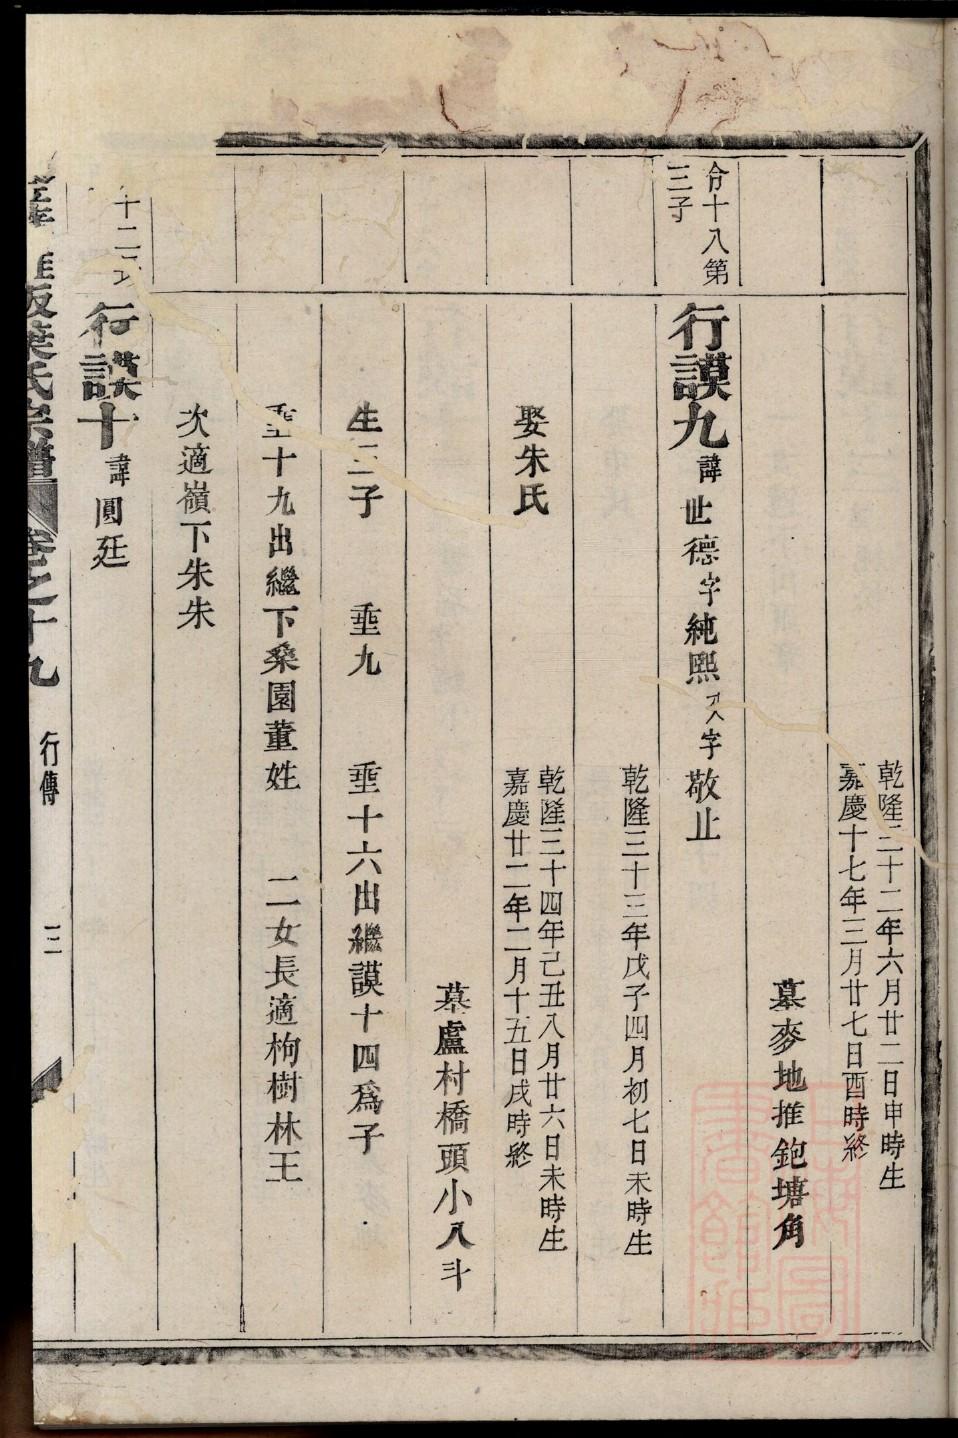 乾隆三十二年六月廿二日申時生
嘉慶十七年三月廿七日酉時終
墓麥地推鉋塘角
令十八第
三子
行謨九諱世德字純熙又字敬止
乾隆三十三年戊子四月初七日未時生
娶朱氏
乾隆三十四年己丑八月廿六日未時生
嘉慶廿二年二月十五日戌時終
墓盧村橋頭小八斗
生三子 垂九 垂十六出繼謨十四爲子
垂十九出繼下桑園董姓 二女長適枸樹林王
次適嶺下朱朱
十二
行謨十諱圓廷
坂葉氏宗譜 卷之十九 行傳 三